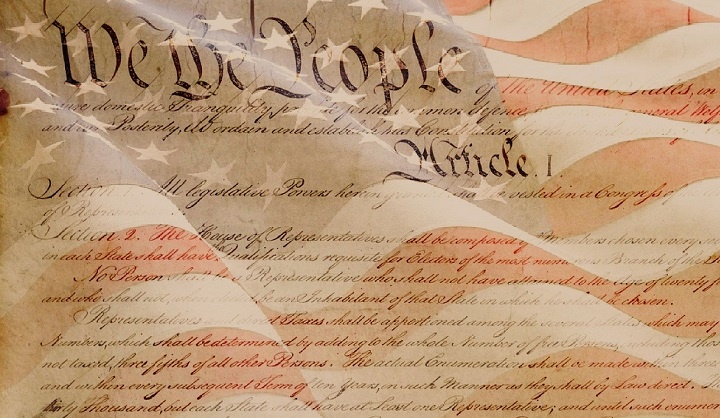 We the People of the United States, in
sure domestic Tranquility, for the common defence, eneral Welf
and our Posterity, do ordain and establish this Constitution for the
Article. I.
Section. 1. All legislative Powers herein granted shall be vested in a Congress of
of Representa
Section. 2. The House of Representatives shall be composed of Members chosen every s
in each State shall have Qualifications requisite for Electors of the most numerous Branch of the
No Person shall be a Representative who shall not have attained to the Age of twenty f
and who shall not, when be an Inhabitant of that State in which he shall be chosen.
Representatives and direct Taxes shall be apportioned among the several States which may
Numbers, which shall be determined by adding to the whole Number of free Persons, including those
not taxed, three fifths of all other Persons. The actual Enumeration shall be made within three
and within every subsequent Term of ten Years, in such Manner as they shall by Law direct.
thirty Thousand, but each State shall have at Least one Representative; and until such enumer